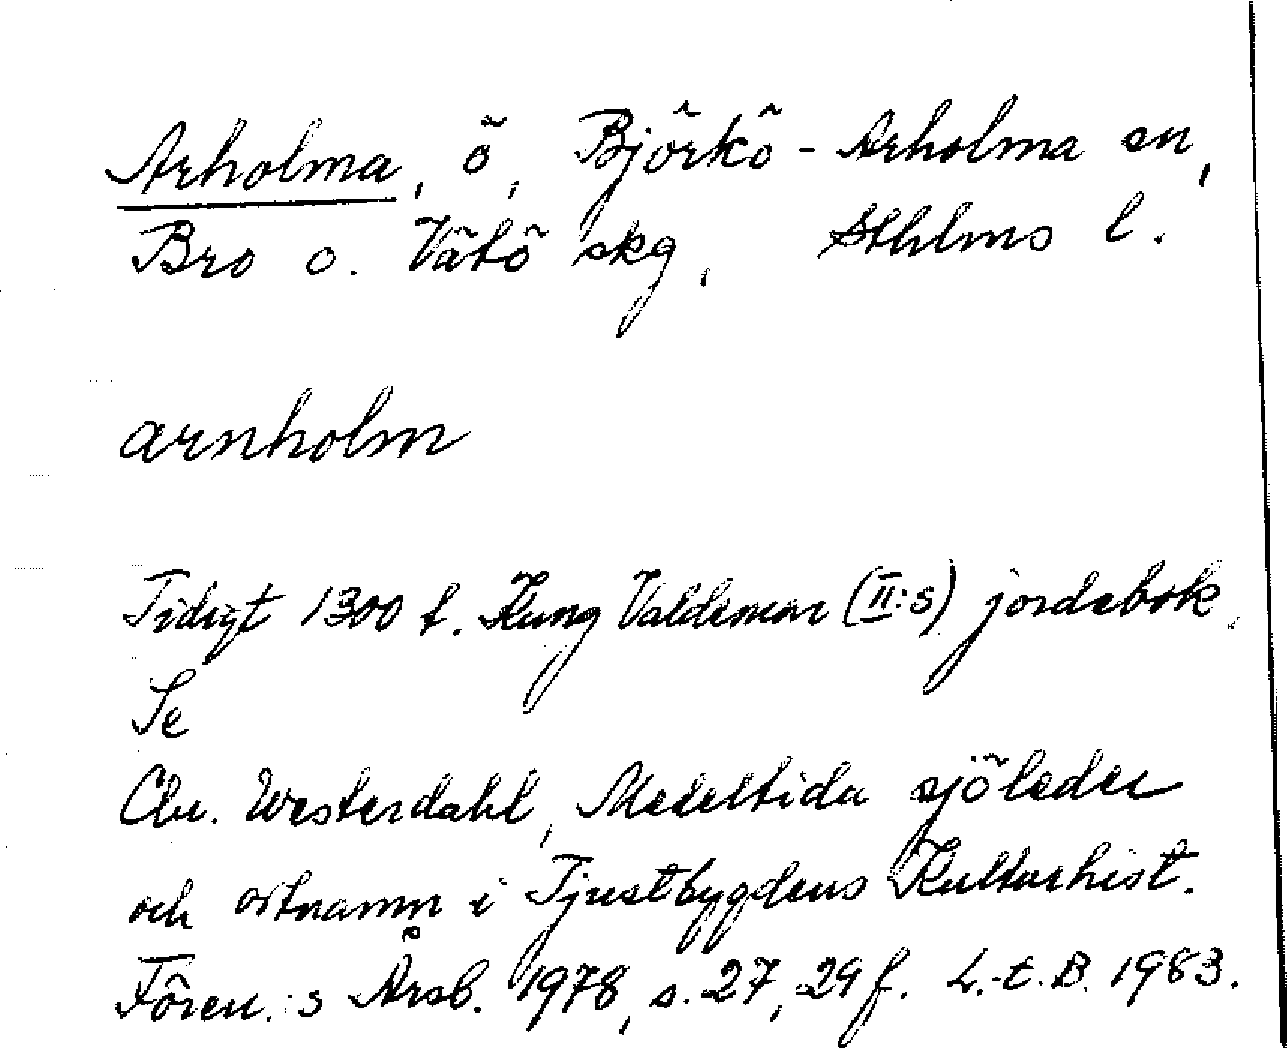 Arholma, ö, Björkö-Arholma sn,
Bro o. Vätö skg, Sthlms l.
arnholm
Tidigt 1300 t. Kung Valdemar (II:s) jordebok.
Se
Chr. Westerdahl, Medeltida sjöleder
och ortnamn i Tjustbygdens Kulturhist.
Fören.:s Årsb. 1978, s. 27, 29 f. L.-E. B. 1983.